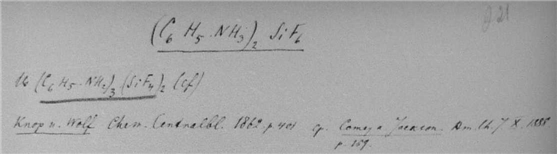 (C6 H5·NH3)2 SiF6
(C6 H5·NH2)3 (SiF4)2 (cf)
Knop u. Wolf Chem. Centralbl. 1862. p. 401 cp. Comey u. Jackson. Am. Ch. J X. 1888
p. 169.